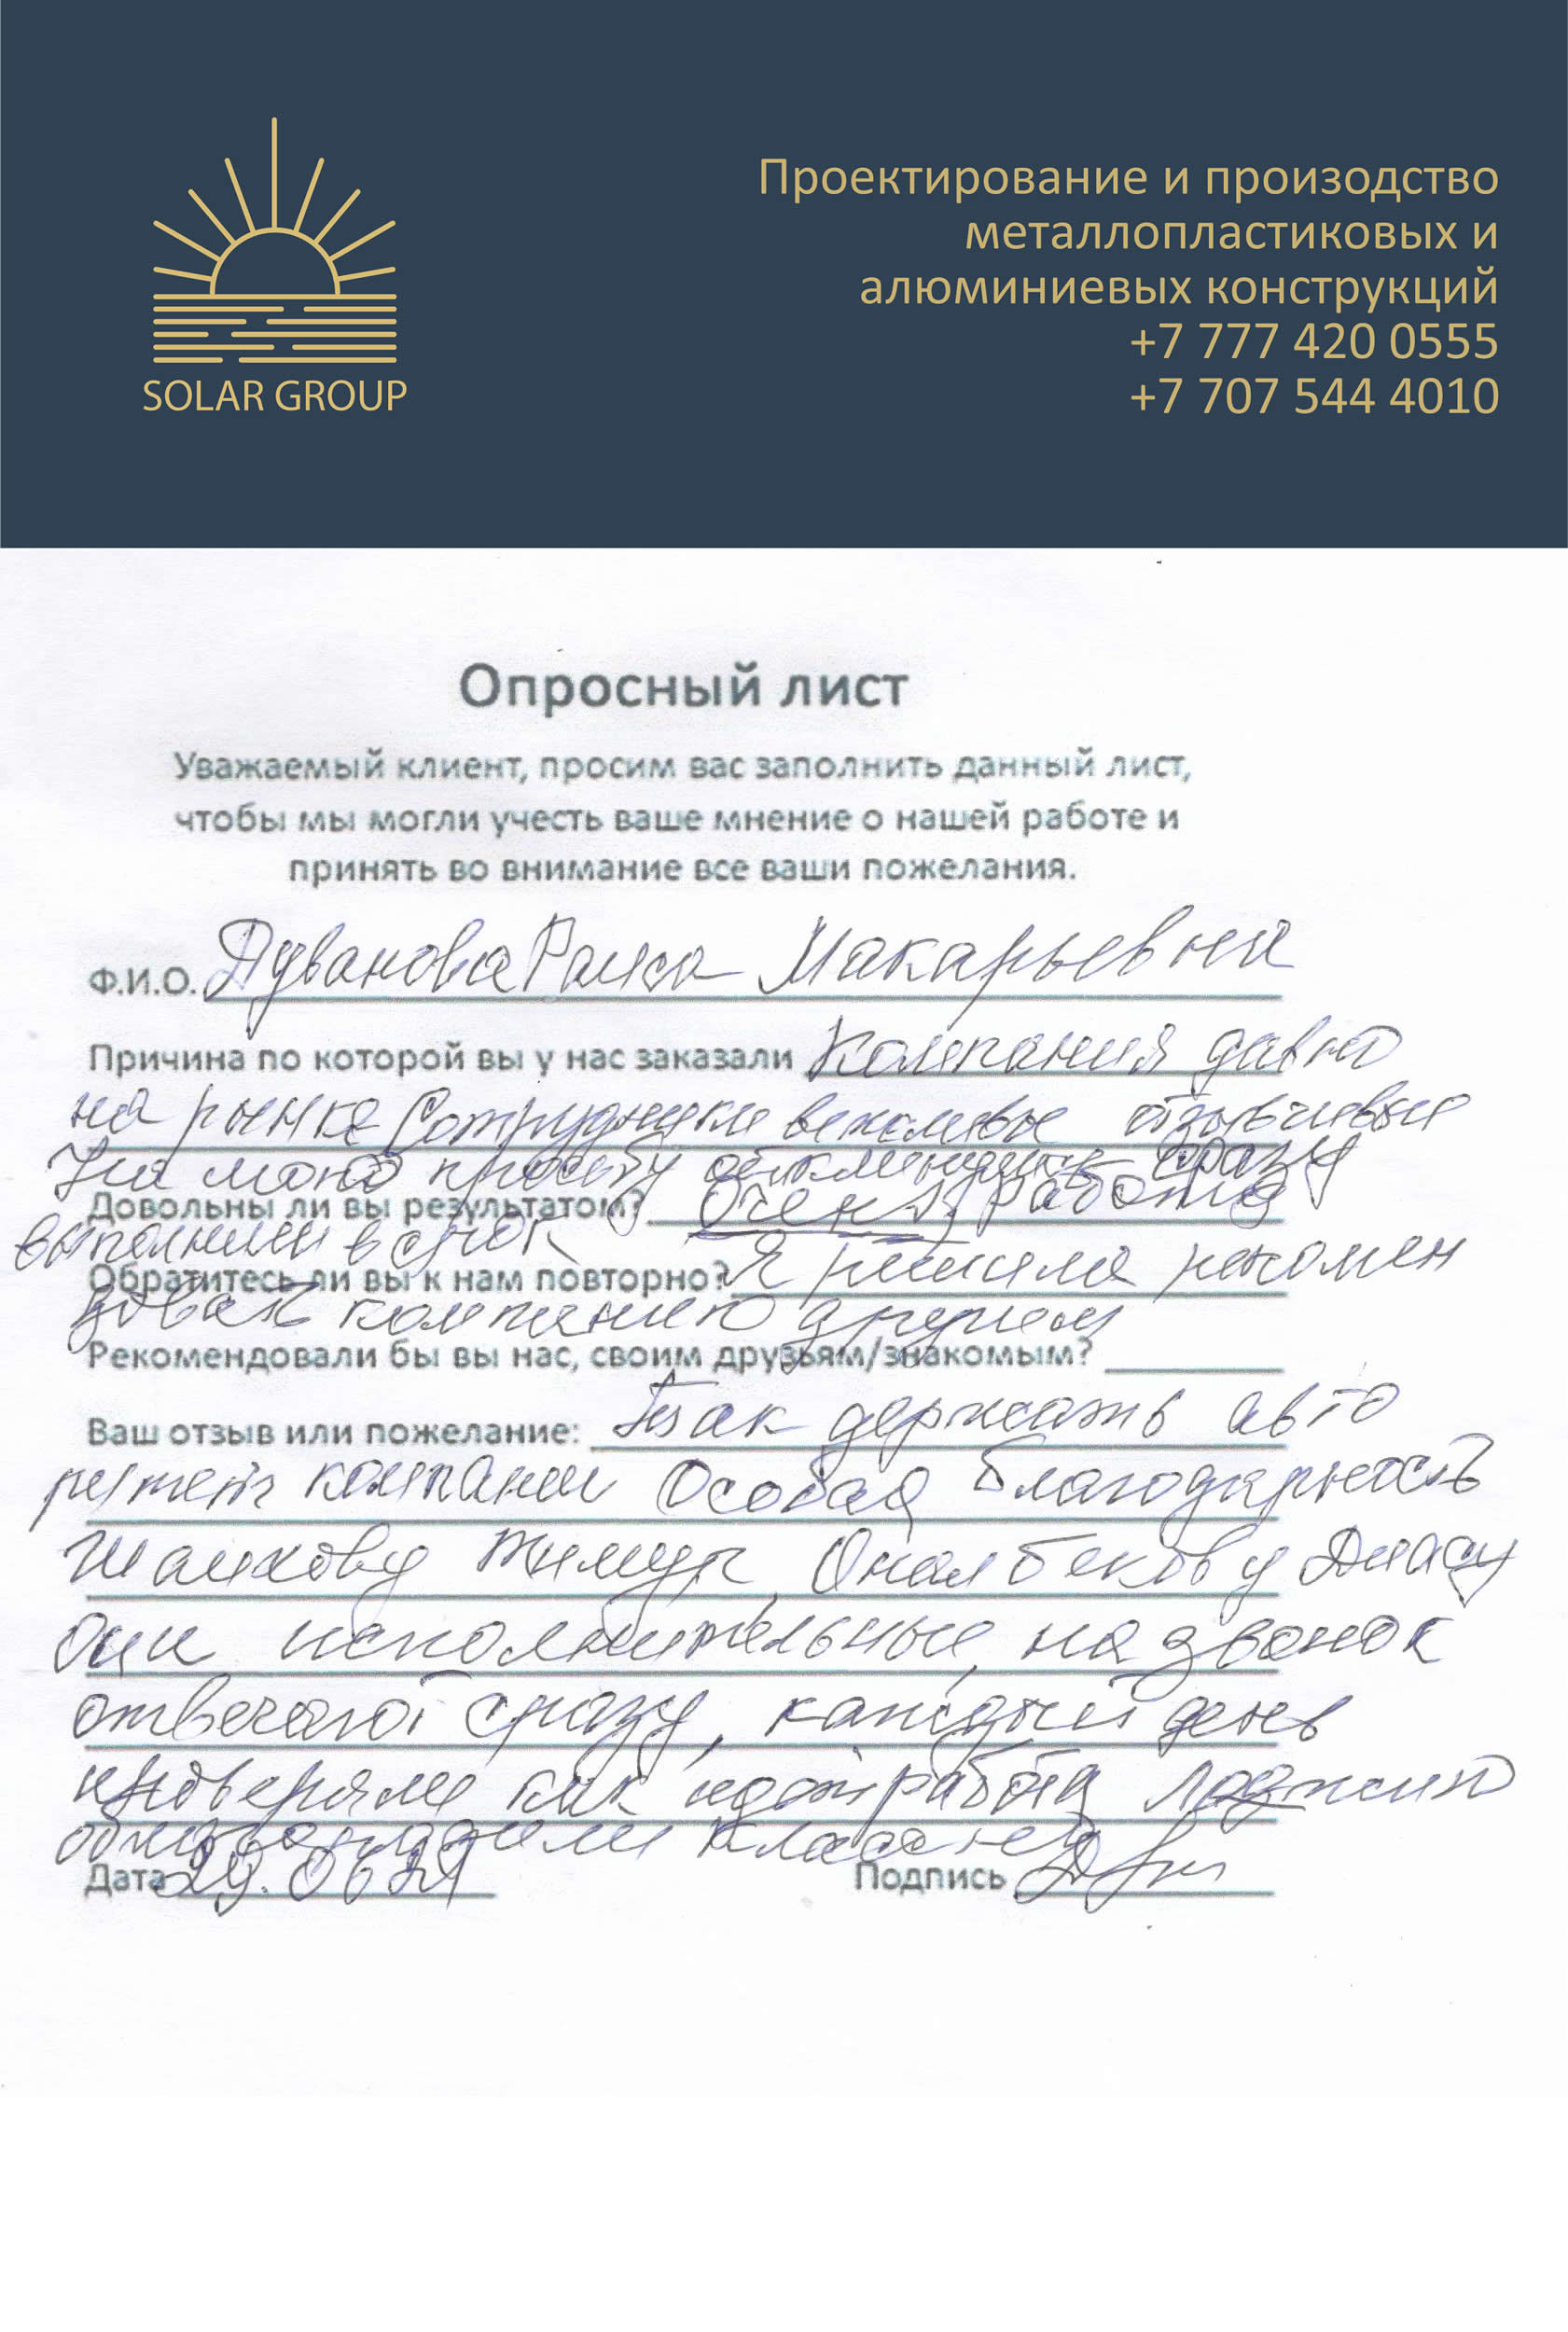 SOLAR GROUP
Проектирование и произодство
металлопластиковых и
алюминиевых конструкций
+7 777 420 0555
+7 707 544 4010
Опросный лист
Уважаемый клиент, просим вас заполнить данный лист,
чтобы мы могли учесть ваше мнение о нашей работе и
принять во внимание все ваши пожелания.
Ф.И.О. Дуванова Раиса Макарьевна
Причина по которой вы у нас заказали Компания давно
на рынке Сотрудники вежливые отзывчивые
На мою просьбу сразу
Довольны ли вы результатом? Очень, Работа
выполнили в срок
Обратитесь ли вы к нам повторно? Я решила рекомен
довать компанию другим
Рекомендовали бы вы нас, своим друзьям/знакомым?
Ваш отзыв или пожелание: Так держать авто
ритет компании Особая благодарность
Шаихову Тимуру, Диасу
они исполнительные, на звонок
отвечают сразу, каждый день
проверяли как идет работа лоджию
Дата 29.06 21 Подпись